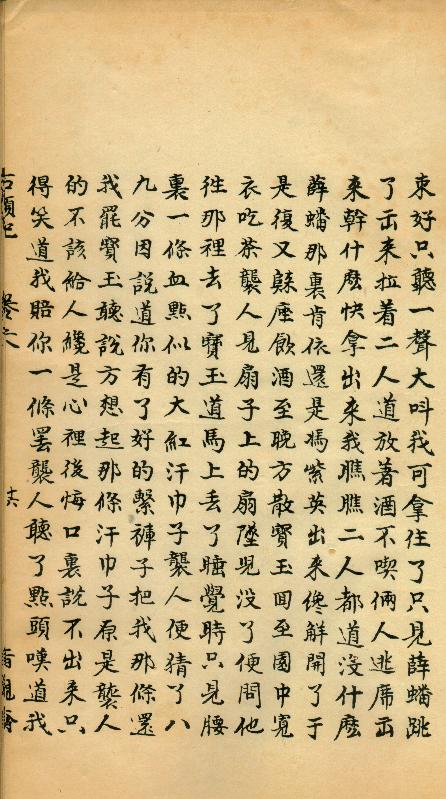 束好只聽一聲大叫我可拿住了只見薛蟠跳
了出来拉着二人道放著酒不喫俩人逃席出
来幹什麽快拿出来我瞧瞧二人都道沒什麽
薛蟠那裏肯依還是馮紫英出来纔解開了于
是復又歸座飲酒至晚方散寶玉回至園中寬
衣吃茶襲人見扇子上的扇墜児沒了便問他
徃那裡去了寶玉道馬上丢了睡覺時只見腰
裏一條血點似的大紅汗巾子襲人便猜了八
九分因說道你有了好的繫褲子把我那條還
我罷寶玉聽說方想起那條汗巾子原是襲人
的不該給人纔是心裡後悔口裏說不出来只
得笑道我賠你一條罢襲人聽了點頭嘆道我
石頭記 卷之 十六